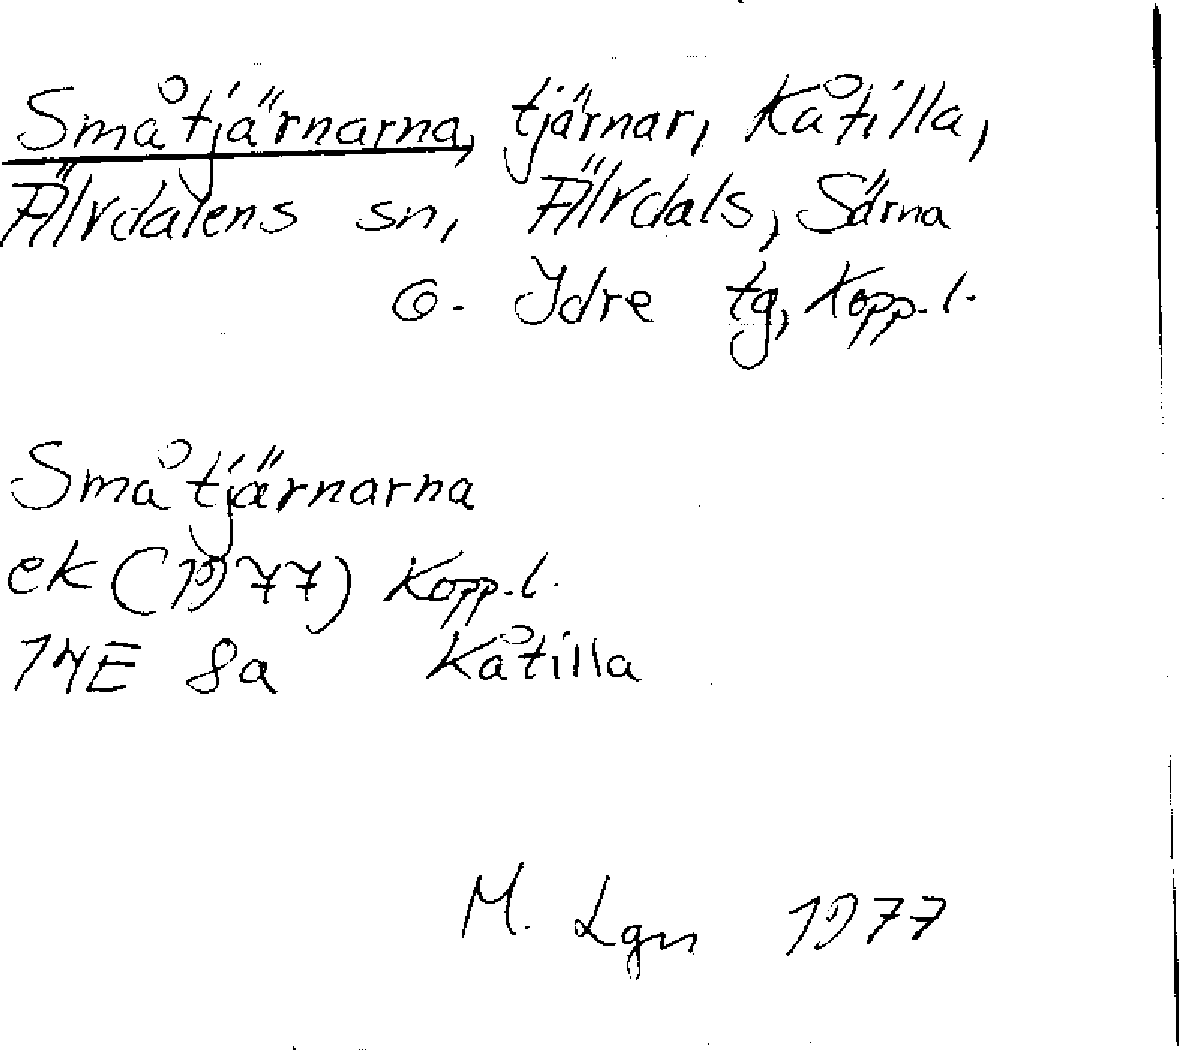 Småtjärnarna, tjärnar, Kåtilla,
Älvdalens sn, Älvdals, Särna
o. Idre tg, Kopp.l.
Småtjärnarna
ek (1977) Kopp.l.
14E 8a Kåtilla
M. Lgn 1977